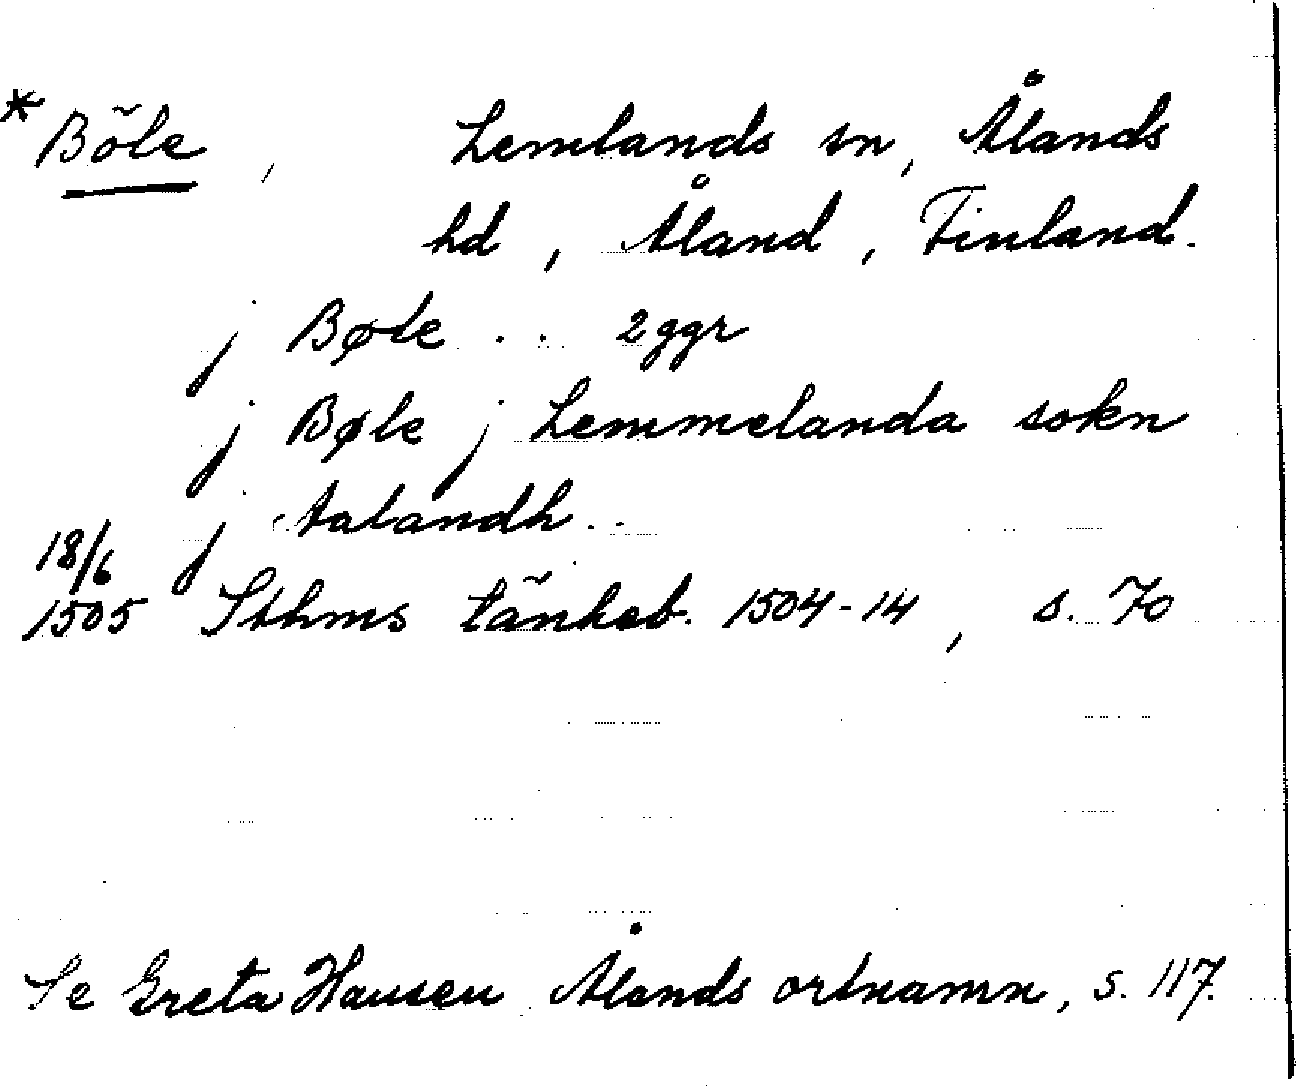 * Böle, Lemlands sn, Ålands
hd, Åland, Finland.
j Bøle .. 2 ggr
j Bøle j Lemmelanda sokn
j Aalandh..
18/6
1505 Sthms tänkeb. 1504-14, s. 70
Se Greta Hausen Ålands ortnamn, s. 117.